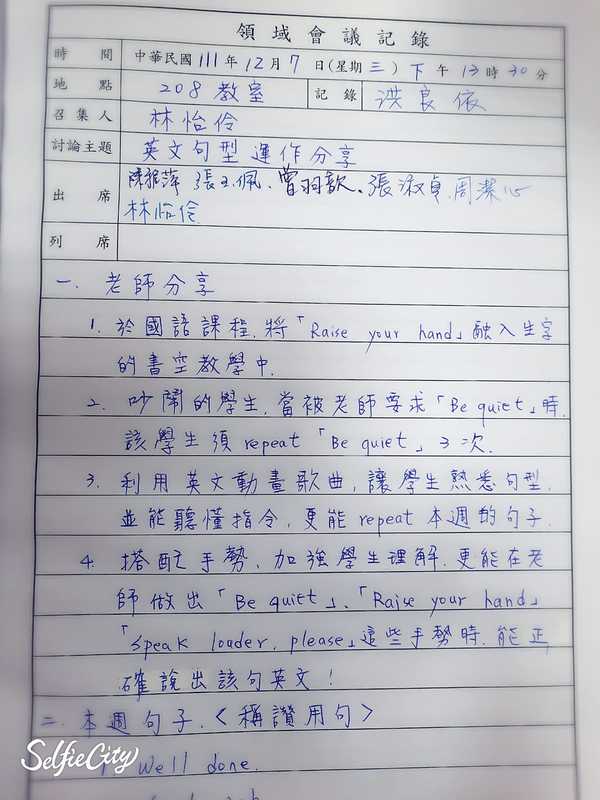 領域會議記錄
時間 中華民國 111 年 12 月 7 日(星期 三 ) 下 午 13 時 30 分
地點 208 教室 記錄 洪良依
召集人 林怡伶
討論主題 英文句型運作分享
出席 張玉佩、曾羽歆、張淑貞、周潔心
林怡伶
列席
一. 老師分享
1. 於國語課程,將「Raise your hand」融入生字
的書空教學中.
2. 吵鬧的學生,當被老師要求「Be quiet」時,
該學生須repeat「Be quiet」3次.
3. 利用英文動畫歌曲,讓學生熟悉句型,
並能聽懂指令,更能repeat本週的句子.
4. 搭配手勢,加強學生理解.更能在老
師做出「Be quiet」、「Raise your hand」
「Speak louder, please」這些手勢時,能正
確說出該句英文!
二. 本週句子.<稱讚用句>
1. Well done.
SelfieCity